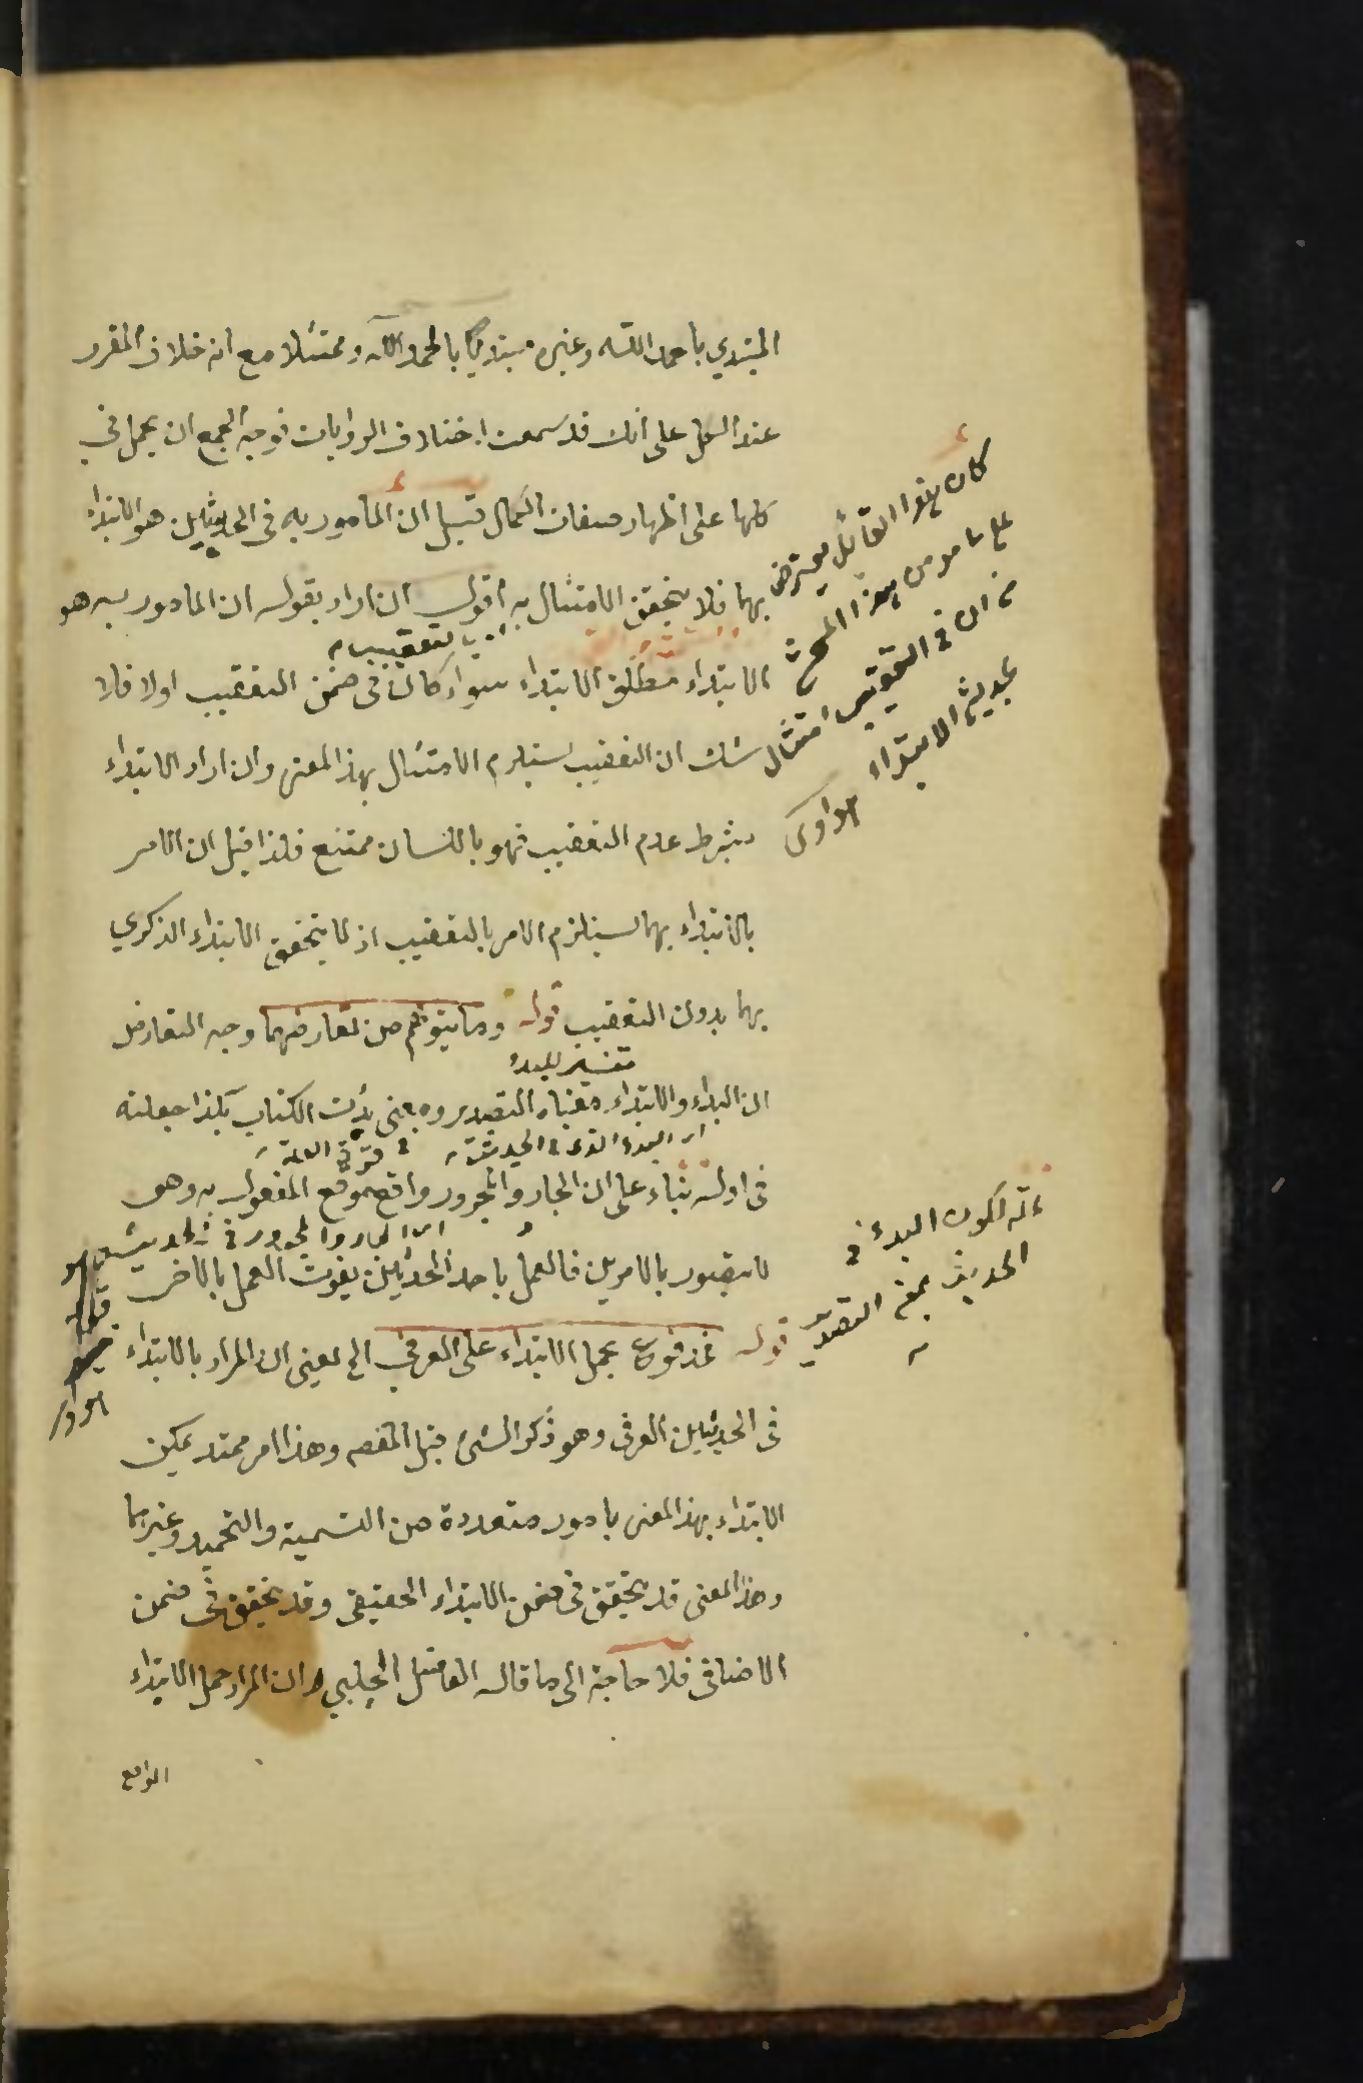 المبتدي باحمد الله وغيره مبتديا بالحمد لله وممتثلا مع انه خلاف المقرر
عند الكل على انك قد سمعت اختلاف الروايات فوجه الجمع ان يحمل في
كلها على اظهار صفات الكمال قيل ان المأمور به في الحديثين هو الابتداء
بهما فلا يتحقق الامتثال به اقول ان اراد بقوله ان المامور به هو
الابتداء مطلق الابتداء سواء كان في ضمن التعقيب اولا فلا
شك ان التعقيب يستلزم الامتثال بهذا المعنى وان اراد الابتداء
بشرط عدم التعقيب فهو باللسان ممتنع فلذا قيل ان الامر
بالابتداء بهما يستلزم الامر بالتعقيب اذ لا يتحقق الابتداء الذكري
بهما بدون التعقيب قوله وما يتوهم من تعارضهما وجه التعارض
تفسير للبدء
ان البداء والابتداء معناه التصدير ومعنى بدئت الكتاب بكذا جعلته
اي البدء الذي في الحديث
في اوله بناء على ان الجار والمجرور واقع موقع المفعول به وهو
اي الجار والمجرور في
لا يتصور بالامرين فالعمل باحد الحديثين يفوت العمل بالاخر
قوله فمدفوع بحمل الابتداء على العرفي الخ يعني ان المراد بالابتداء
في الحديثين العرفي وهو ذكر الشئ قبل المقصد وهذا امر ممتد يمكن
الابتداء بهذا المعنى بامور متعددة من التسمية والتحميد وغيرهما
وهذا المعنى قد يتحقق في ضمن الابتداء الحقيقي وقد يتحقق في ضمن
الاضافي فلا حاجة الى ما قاله الفاضل الچلبي وان المراد حمل الابتداء
الواقع
كان هذا القائل معترض
على ما مر من هذا المبحث
ان في التعقيب امتثال
بحديث الابتداء
لكون البدء في
الحديث بمعنى التصدير